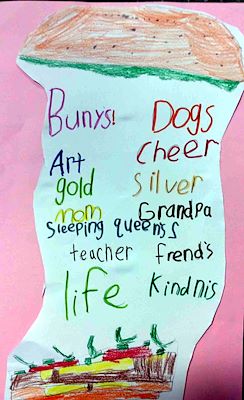 Bunys! Dogs
Art cheer
gold silver
mom Grandpa
Sleeping queens
teacher frend's
life Kindnis